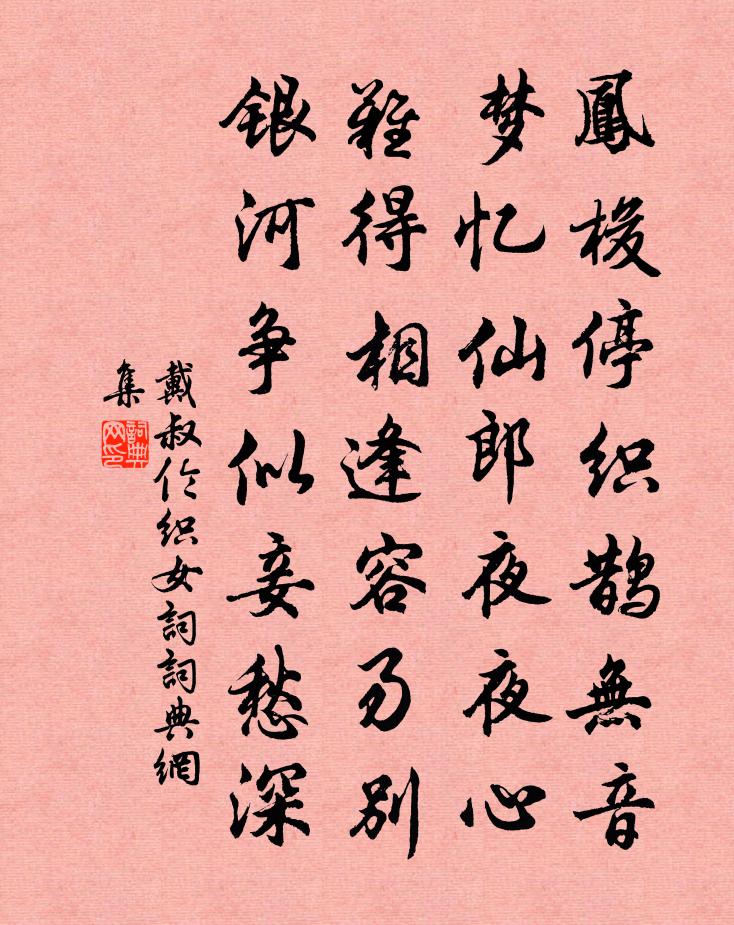 鳳梭停织鹊無音
梦忆仙郎夜夜心
難得相逢容易别
银河争似妾愁深
戴叔伦织女词詞典網
集
詞典
网印